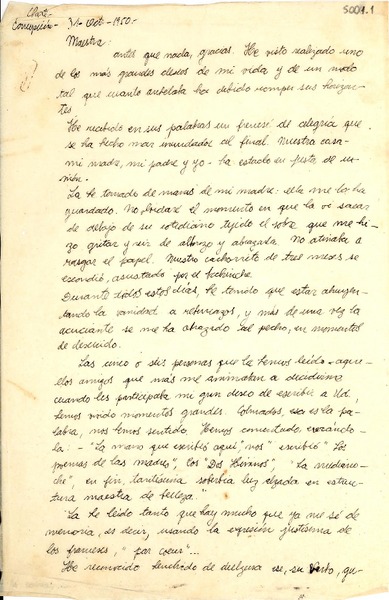 Chile -
Concepción - 31 - Oct - 1950.-
5001.1
Maestra:
antes que nada, gracias. He visto realizado uno
de los más grandes deseos de mi vida y de un modo
tal que cuanto anhelaba ha debido romper sus horizon-
tes.
He recibido en sus palabras un frenesí de alegría que
se ha hecho mar inundados al final. Nuestra casa-
mi madre, mi padre y yo- ha estado en fiesta de
La he tomado de manos de mi madre: ella me la ha
guardado. No olvidaré el momento en que la vi sacar
de debajo de su cotidiano tejido el sobre que me hi-
zo gritar y reír de alborozo y abrazarla. No atinaba a
rasgar el papel. Nuestro cachorrito de tres meses se
escondió, asustado por el bochinche.
Durante todos estos días, he tenido que estar ahuyen-
tando la vanidad a rebencazos, y más de una vez la
acuciante se me ha abrazado al pecho, en momentos
de descuido.
Las cinco ó seis personas que la hemos leído - aque-
llos amigos que más me animaban a decidirme
cuando les participaba mi gran deseo de escribir a Ud.,
hemos vivido momentos grandes. Colmados, esa es la pa-
labra, nos hemos sentido. Hemos comentado,
la: - "La mano que escribió aquí, nos" escribió "Los
poemas de las madres", los "Dos Himnos", "La mediano-
che", en fin, tantísima soberbia luz alzada en estruc-
tura maestra de belleza."
La he leído tanto que hay mucho que ya me sé de
memoria, es decir, usando la expresión justísima de
los franceses, "par coeur"...
He reconocido henchado de dulzura ese, su verso, que